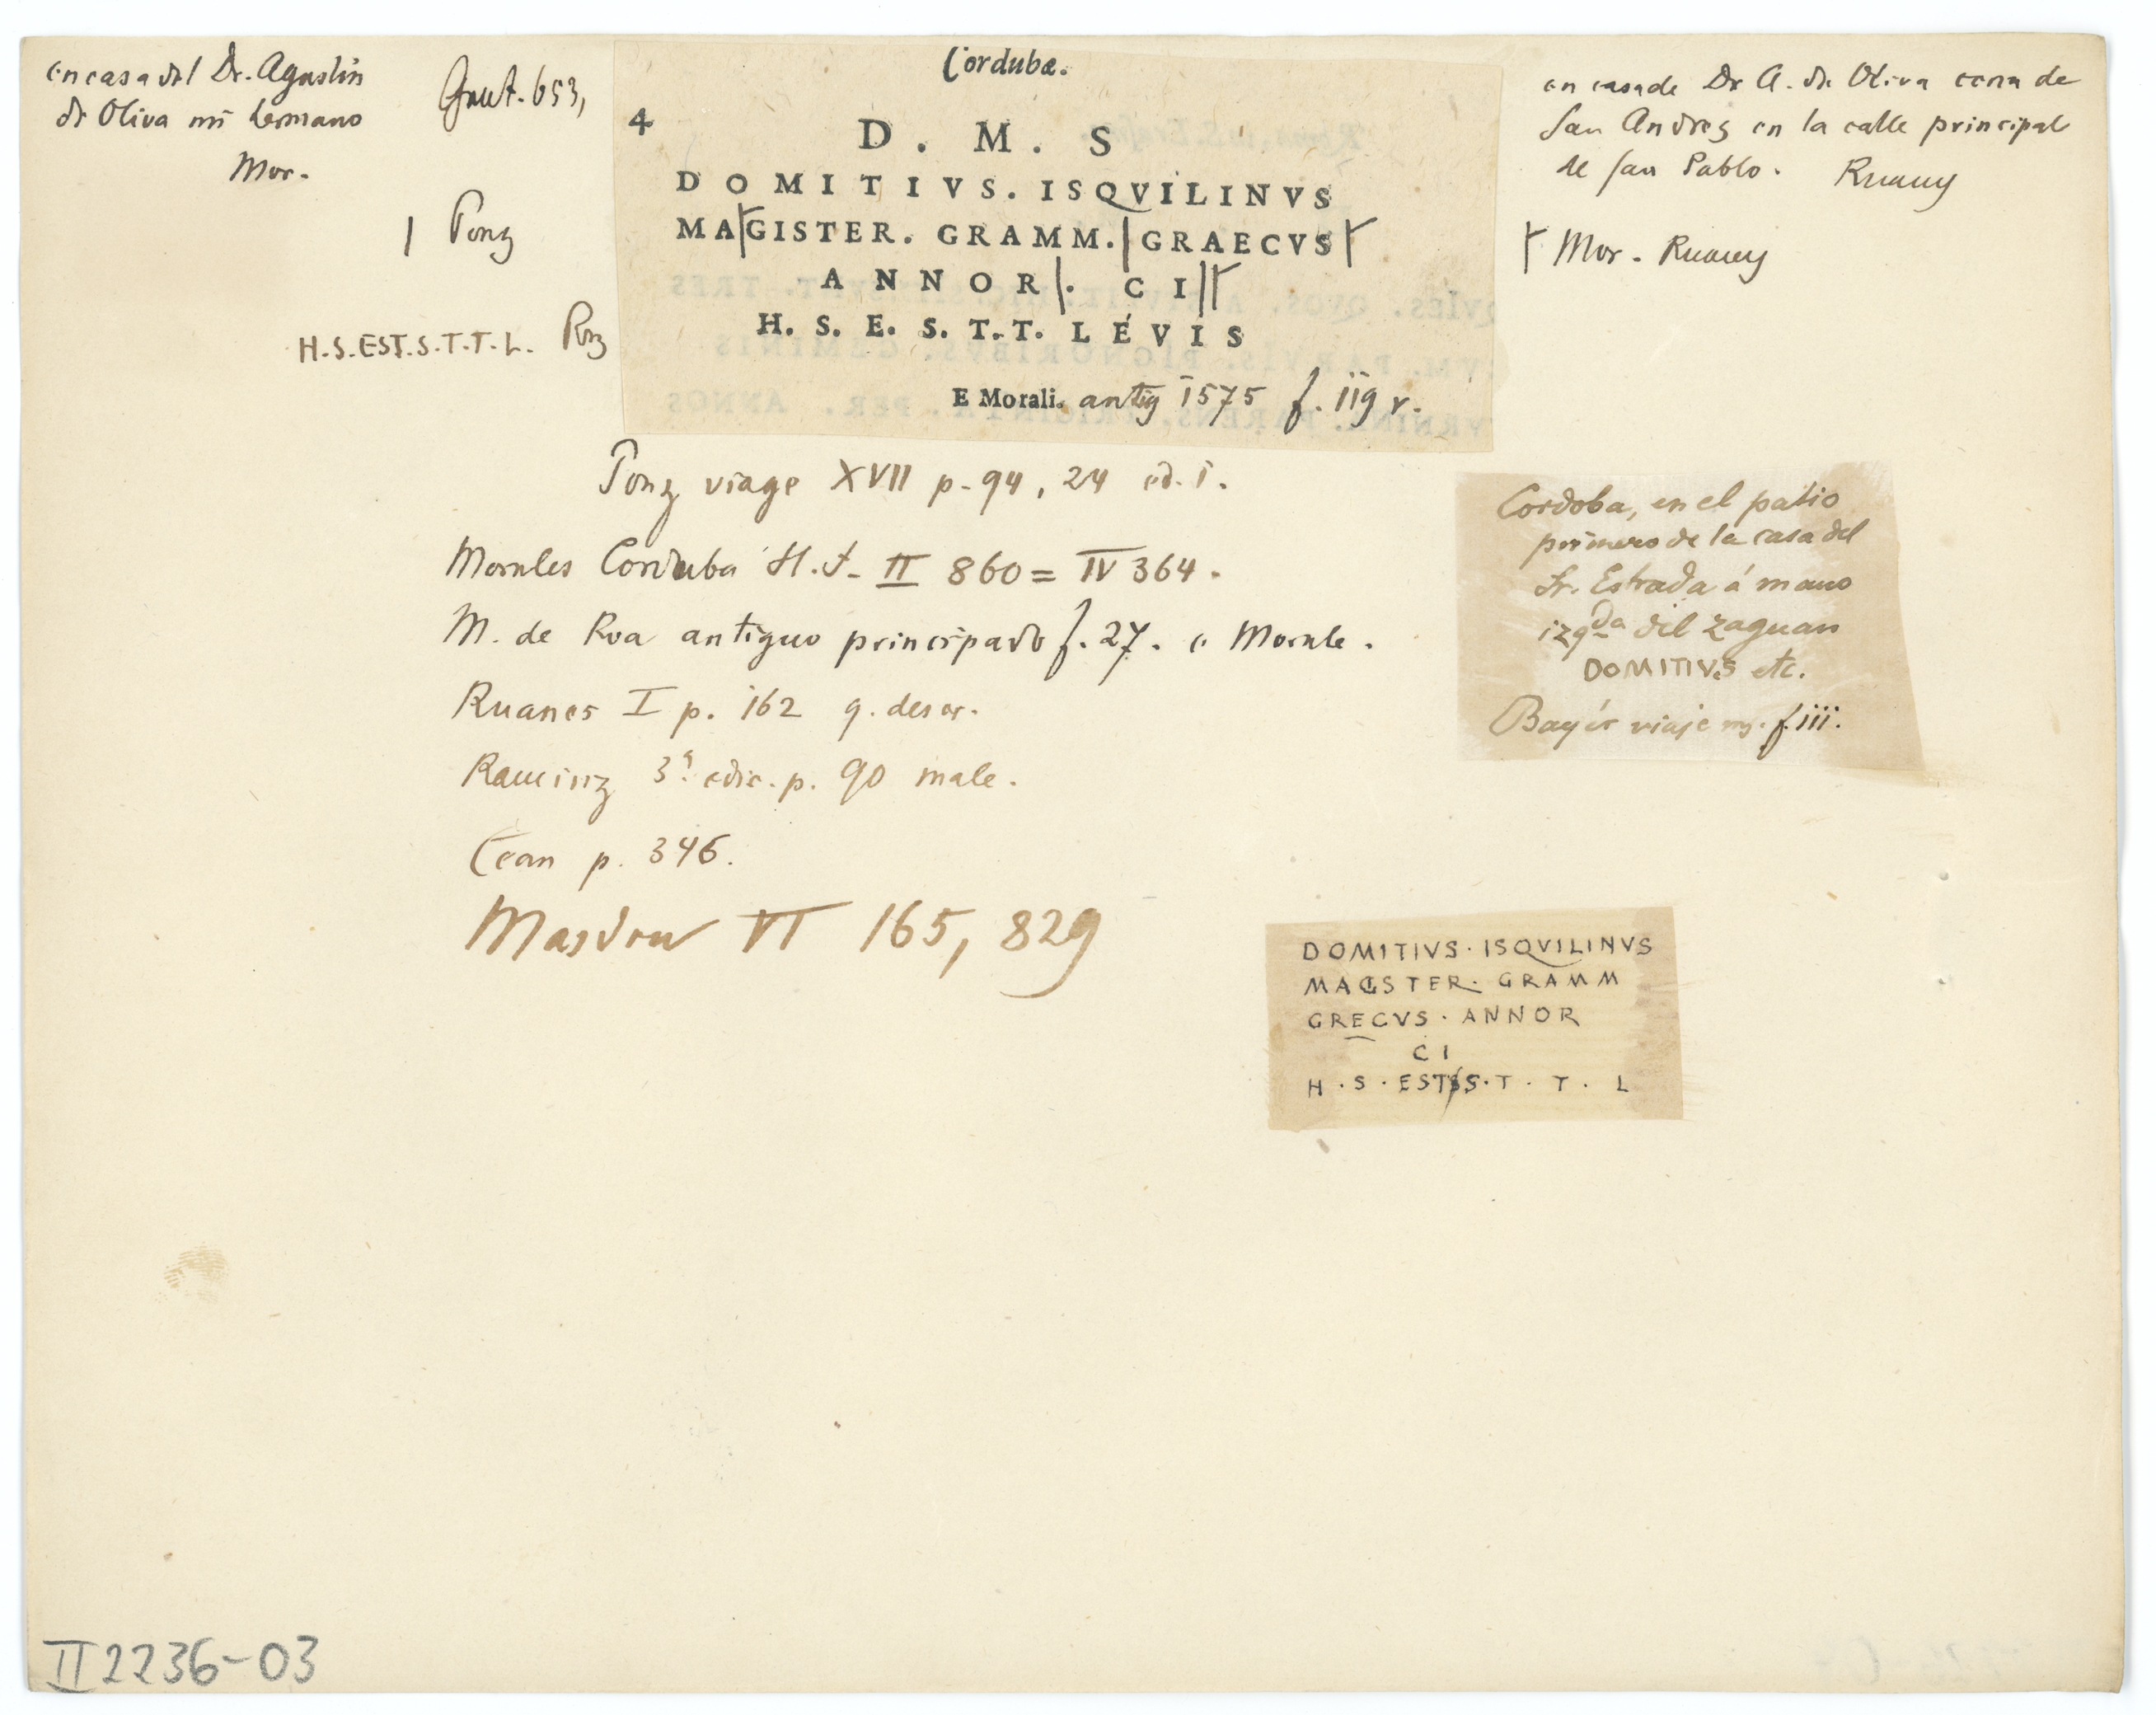 en casa del Dr. Agustin
de Oliva mi hermano
Mor.
Grut. 653,
| Ponz
H.S.EST.S.T.T.L. Ponz
Cordubæ.
4
D . M . S
DOMITIVS. ISQVILINVS
MAGISTER. GRAMM. GRAECVS
ANNOR. CI
H. S. E. S. T. T. LÉVIS
E Morali. antig 1575 f. 119 v.
en casa de Dr A. de Oliva cerca de
San Andres en la calle principal
de San Pablo. Ruany
Mor. Ruany
Ponz viage XVII p. 94, 24 ed. 1.
Morales Corduba H.J. II 860 = IV 364.
M. de Roa antiguo principado f. 27. e Morale.
Ruanes I p. 162 q. descr.
Ramirez 3ª edic. p. 90 male.
Cean p. 346.
Masdeu VI 165, 829
Cordoba, en el patio
primero de la casa del
Sr. Estrada á mano
izqda del zaguan
DOMITIVS etc.
Bayér viaje ms. f. 111.
DOMITIVS · ISQVILINVS
MAGSTER · GRAMM
GRECVS · ANNOR
CI
H · S · EST S · T · T · L
II 2236-03